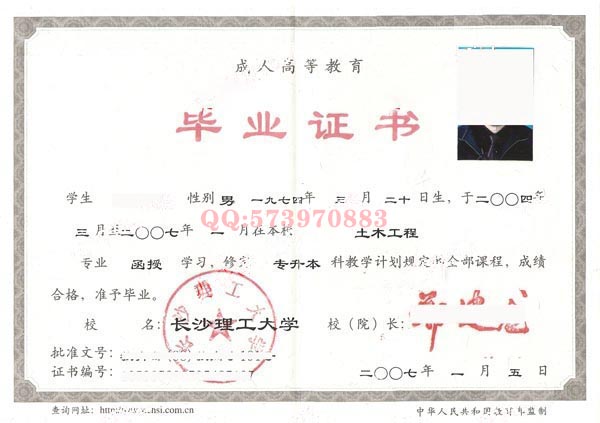 成人高等教育
毕业证书
学生 性别 男 一九七四年 三月 二十日生，于二〇〇四年
QQ:573970883
三月至二〇〇七年 一月在本校 土木工程
专业 函授 学习，修完 专升本 科教学计划规定的全部课程，成绩
合格，准予毕业。
校 名：长沙理工大学 校（院）长：
长沙理工大学
批准文号：
证书编号：
二〇〇七年 一月 五日
查询网址：http://www. nsi.com.cn
中华人民共和国教育部监制